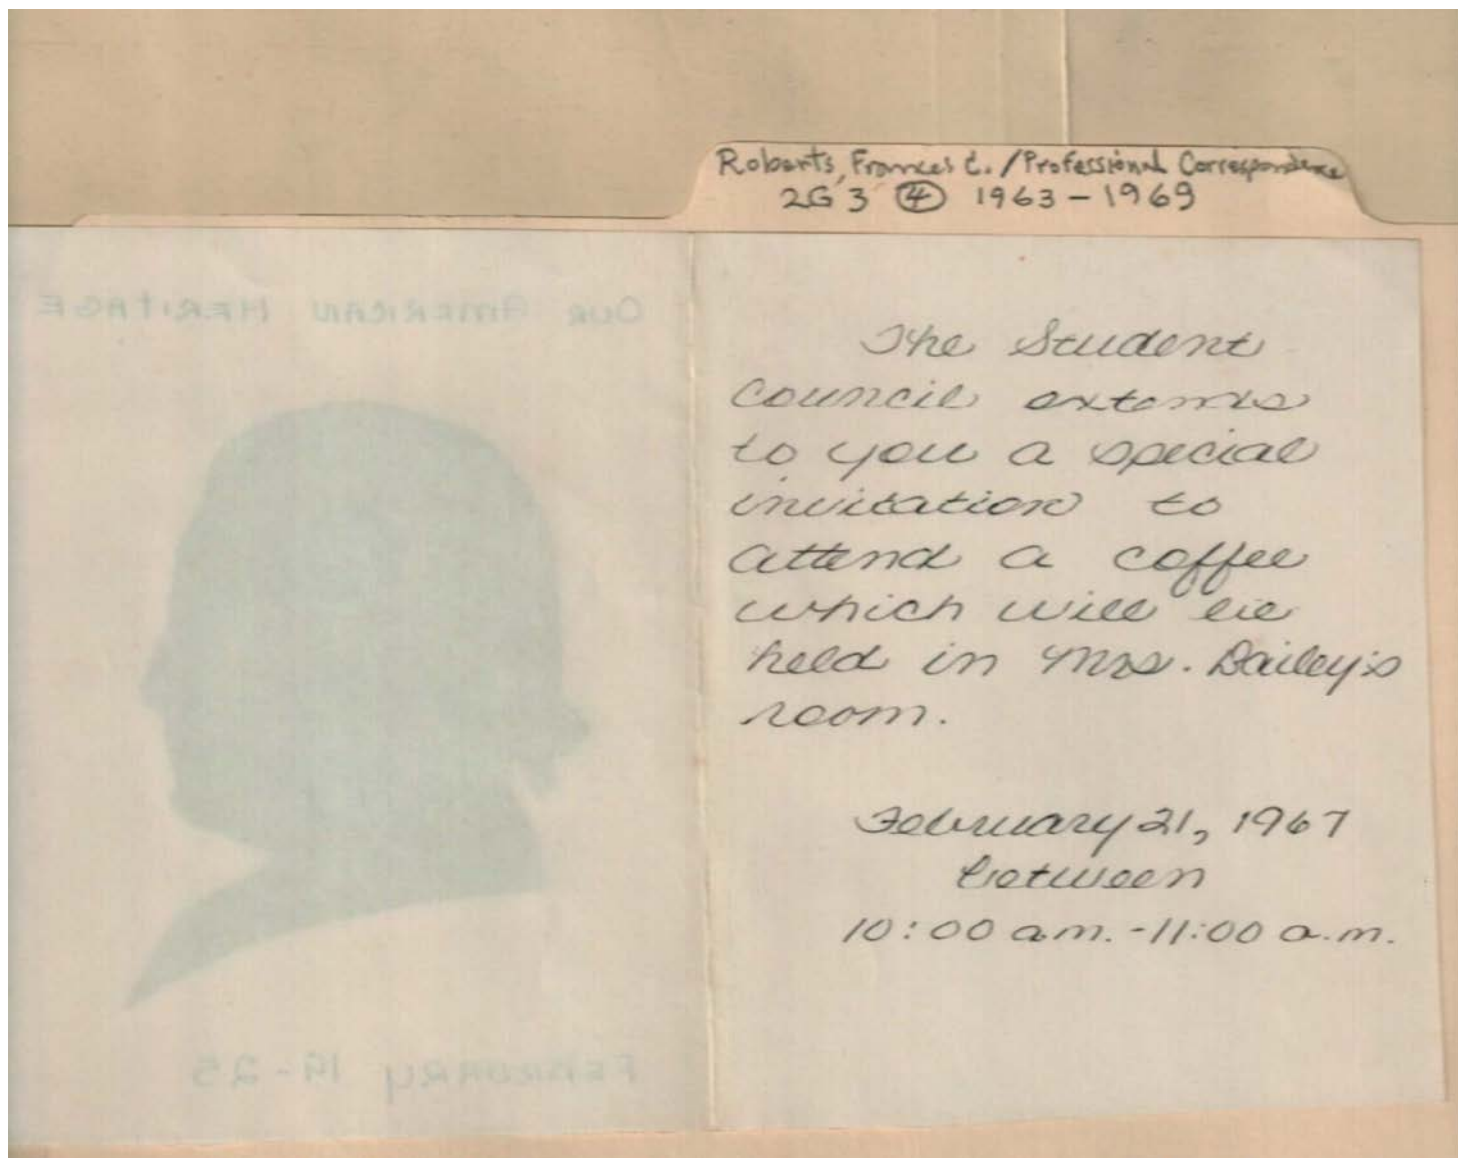 Roberts, Frances C. / Professional Correspondence
2G 3 ④ 1963-1969
OUR AMERICAN HERITAGE
FEBRUARY 19-25
The Student
Council extends
to you a special
invitation to
attend a coffee
which will be
held in Mrs. Dailey's
room.
February 21, 1967
between
10:00 a.m. - 11:00 a.m.